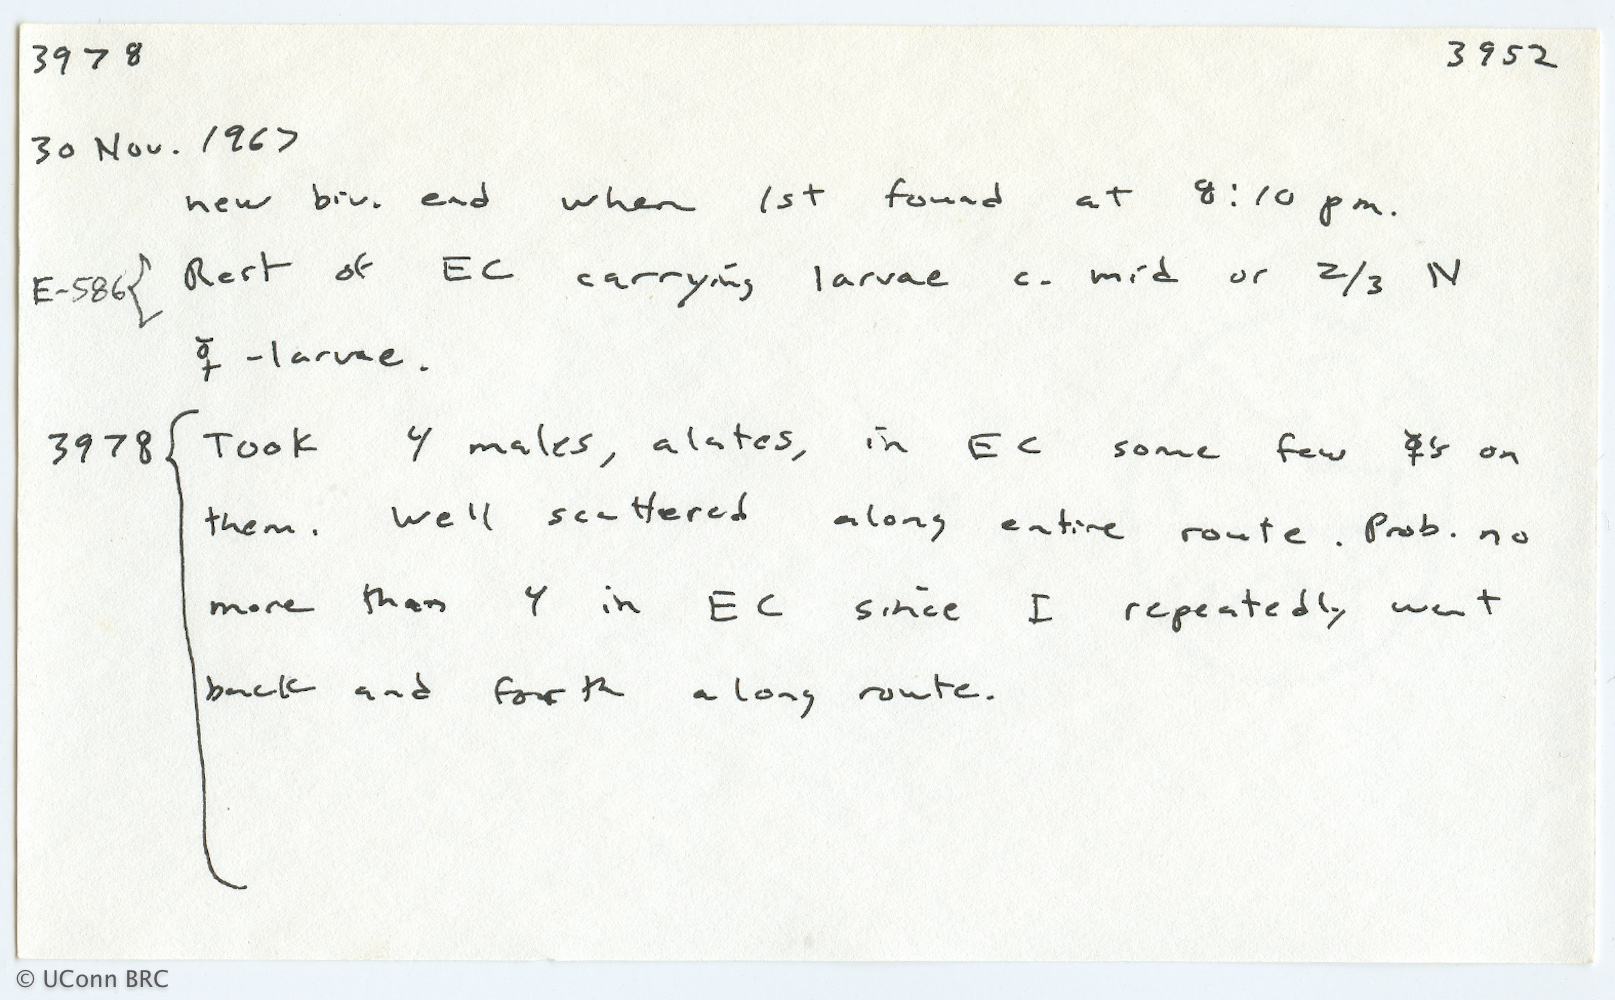 3978 3952
30 Nov. 1967
new biv. end when 1st found at 8:10 pm.
E-586{ Rest of EC carrying larvae c. mid or 2/3 N
☿ -larvae.
3978{ Took 4 males, alates, in EC some few ☿s on
them. Well scattered along entire route. Prob. no
more than 4 in EC since I repeatedly went
back and forth along route.
© UConn BRC